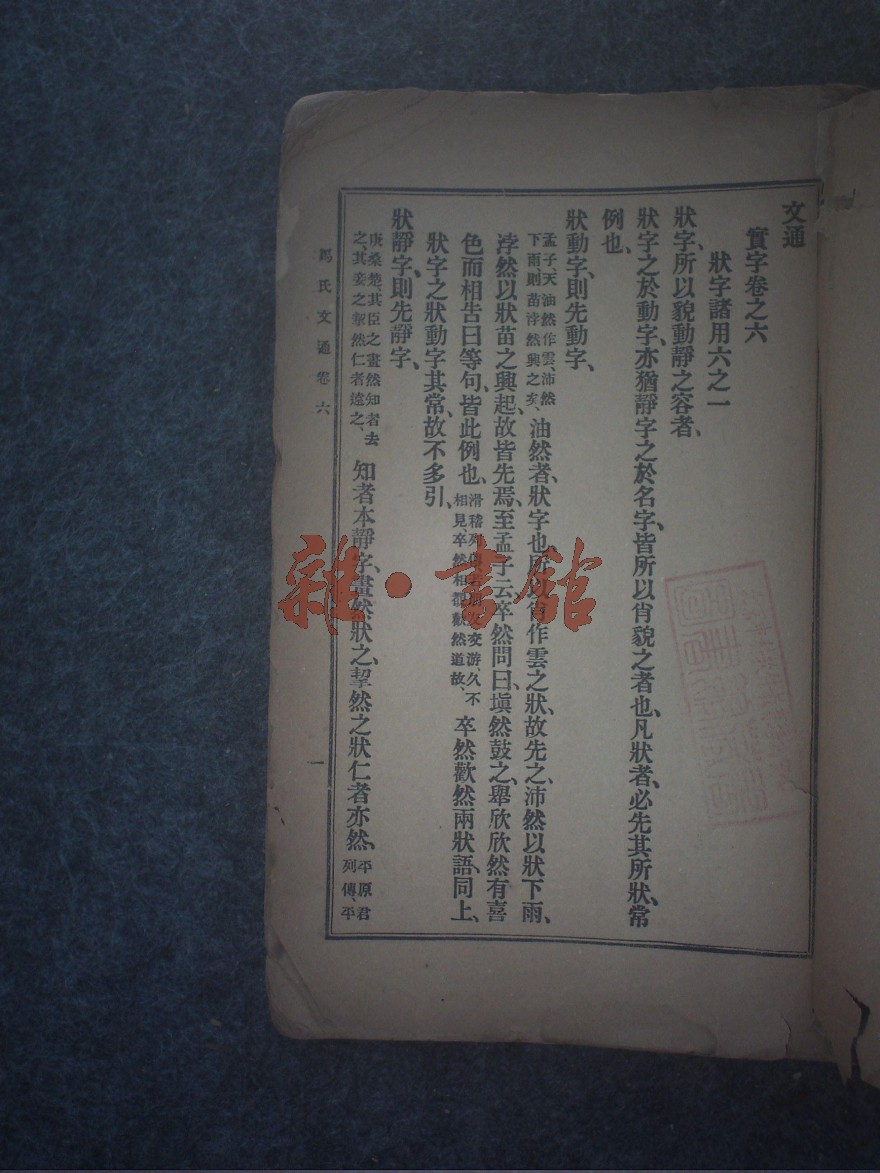 文通
實字卷之六
狀字諸用六之一
狀字、所以貌動靜之容者、
狀字之於動字、亦猶靜字之於名字、皆所以肖貌之者也、凡狀者、必先其所狀、常
例也、
狀動字、則先動字、
孟子、天油然作雲、沛然
下雨、則苗浡然興之矣、
油然者、狀字也、所以肖作雲之狀、故先之、沛然以狀下雨、
浡然以狀苗之興起、故皆先焉、至孟子云卒然問曰、塡然鼓之、舉欣欣然有喜
色而相告曰等句、皆此例也、
滑稽列傳、若朋友交游、久不
相見、卒然相覩、歡然道故、
卒然歡然兩狀語、同上、
狀字之狀動字其常、故不多引、
狀靜字、則先靜字、
庚桑楚、其臣之畫然知者去
之、其妾之挈然仁者遠之、
知者本靜字、畫然狀之、挈然之狀仁者亦然、
平原君
列傳、平
馬氏文通卷六
一
雜·書館